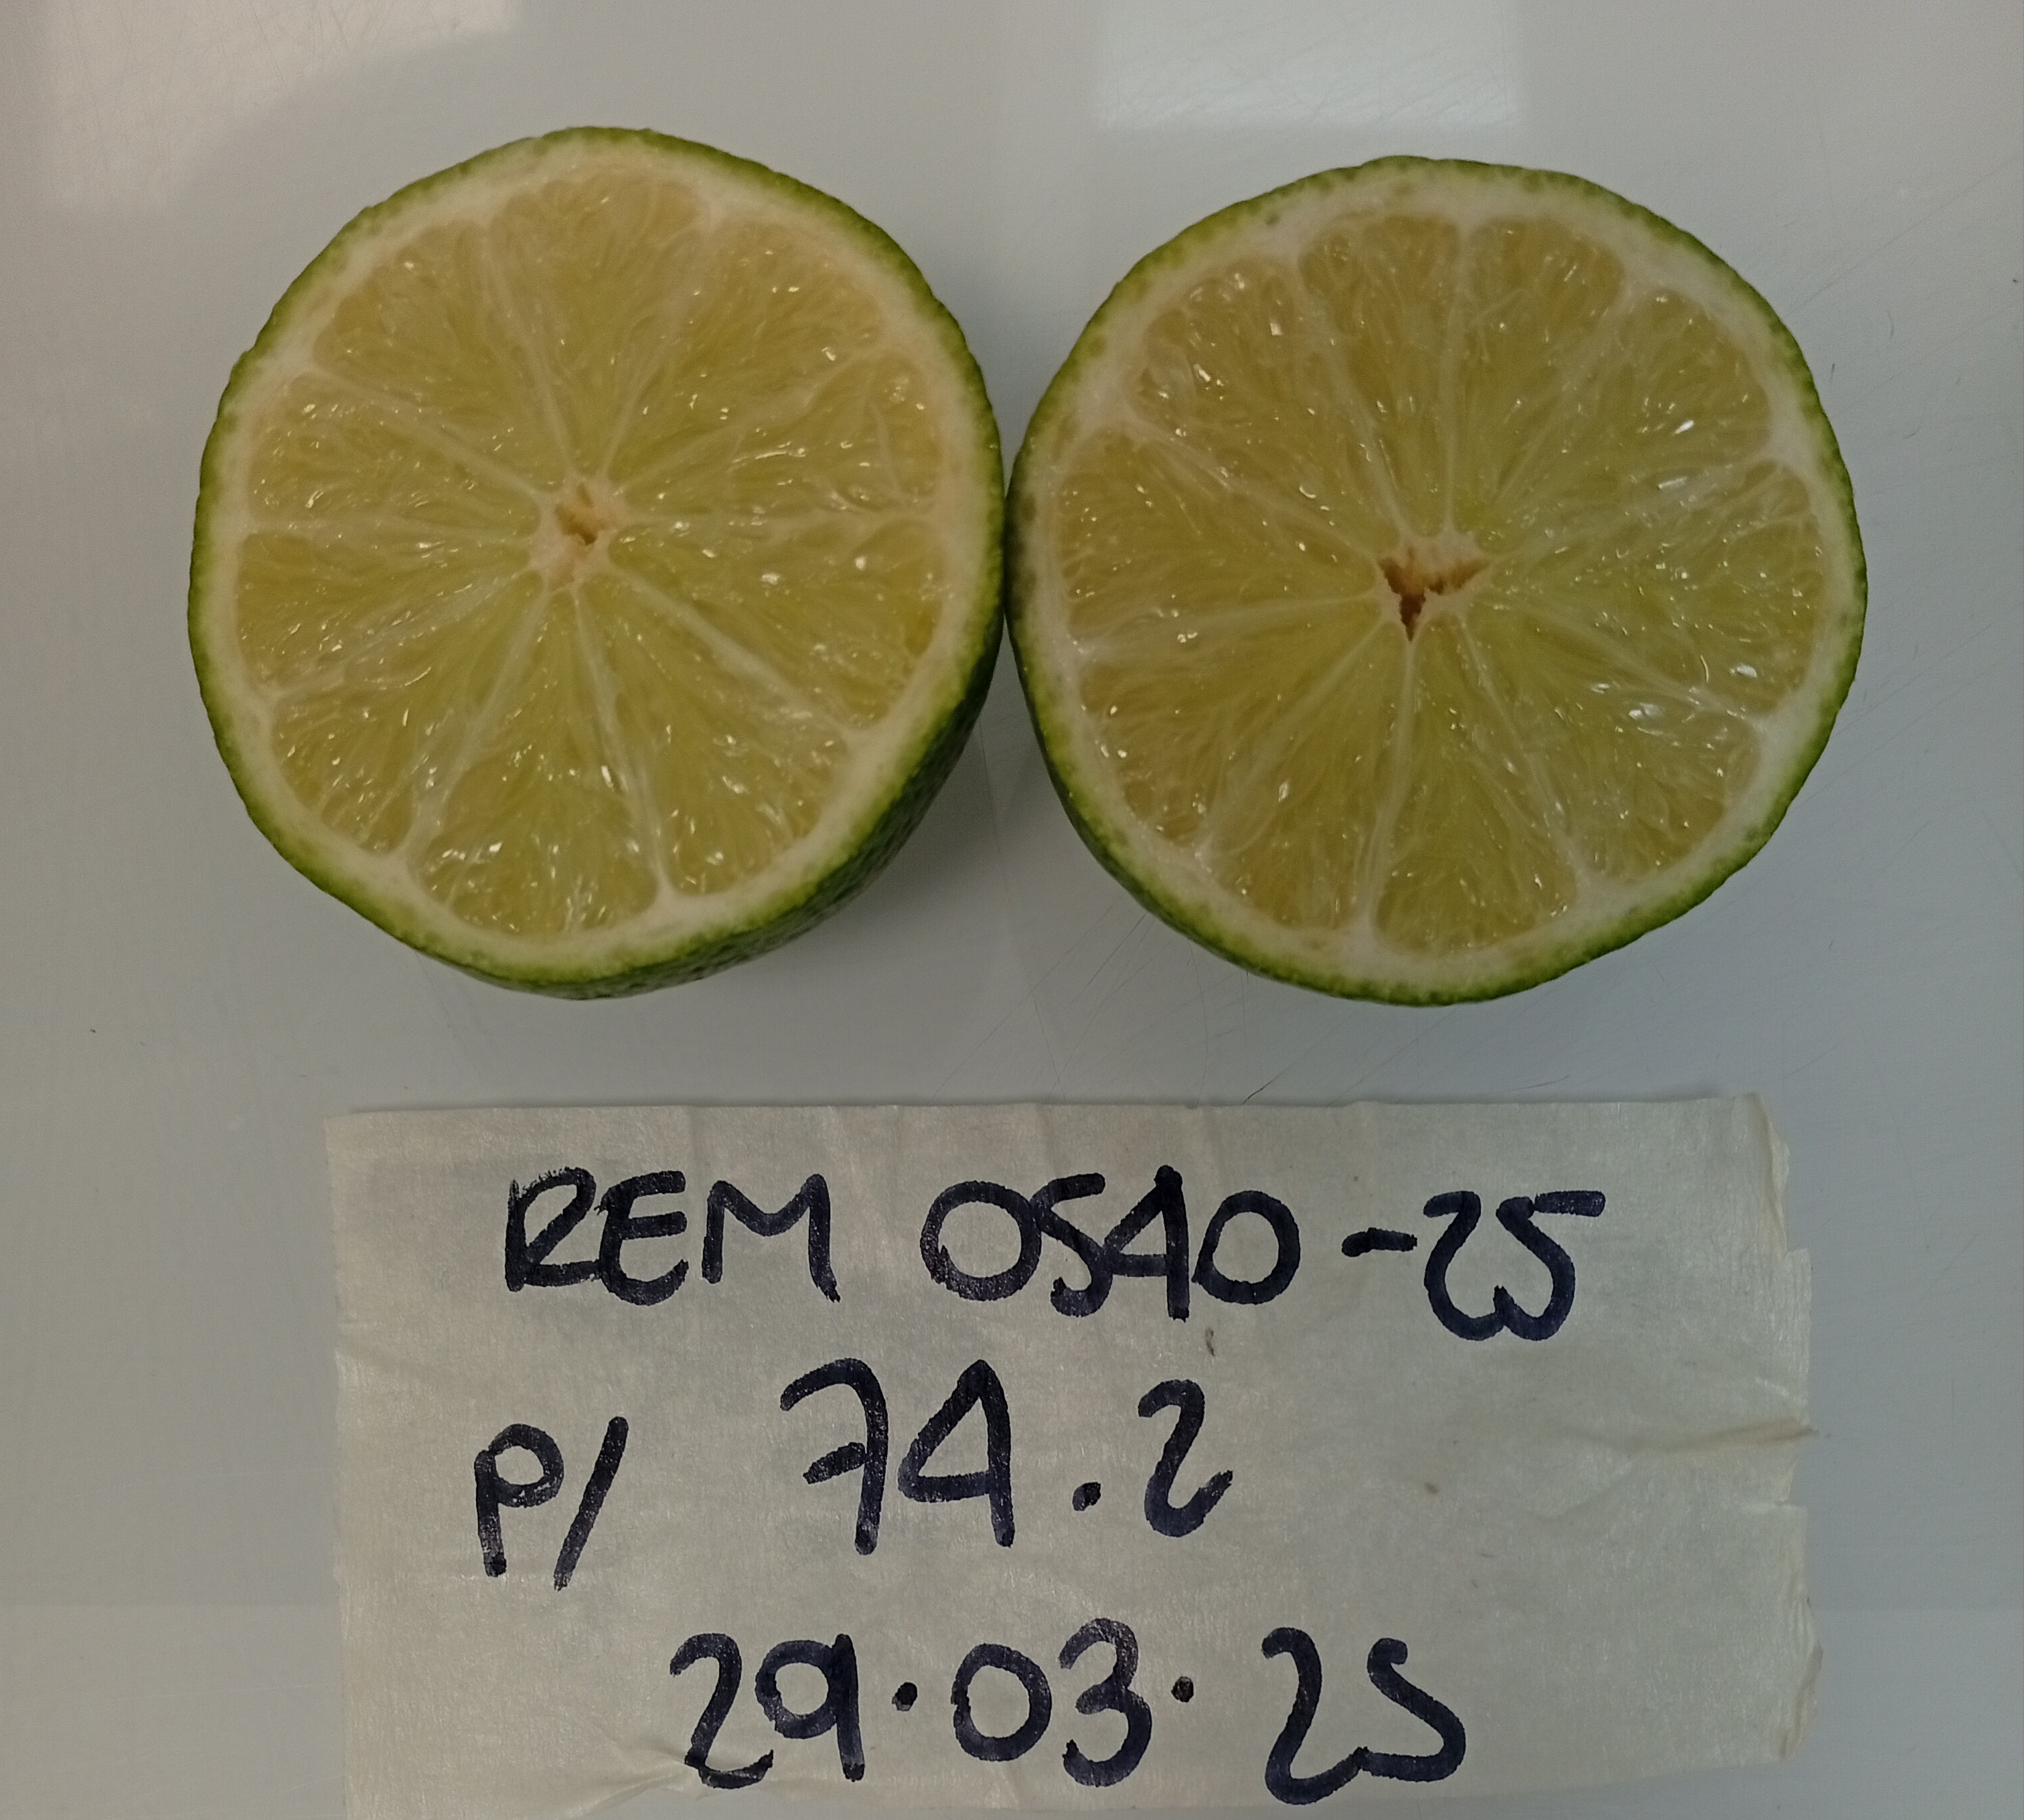 REM 0540-25
P/ 74.2
29.03.25